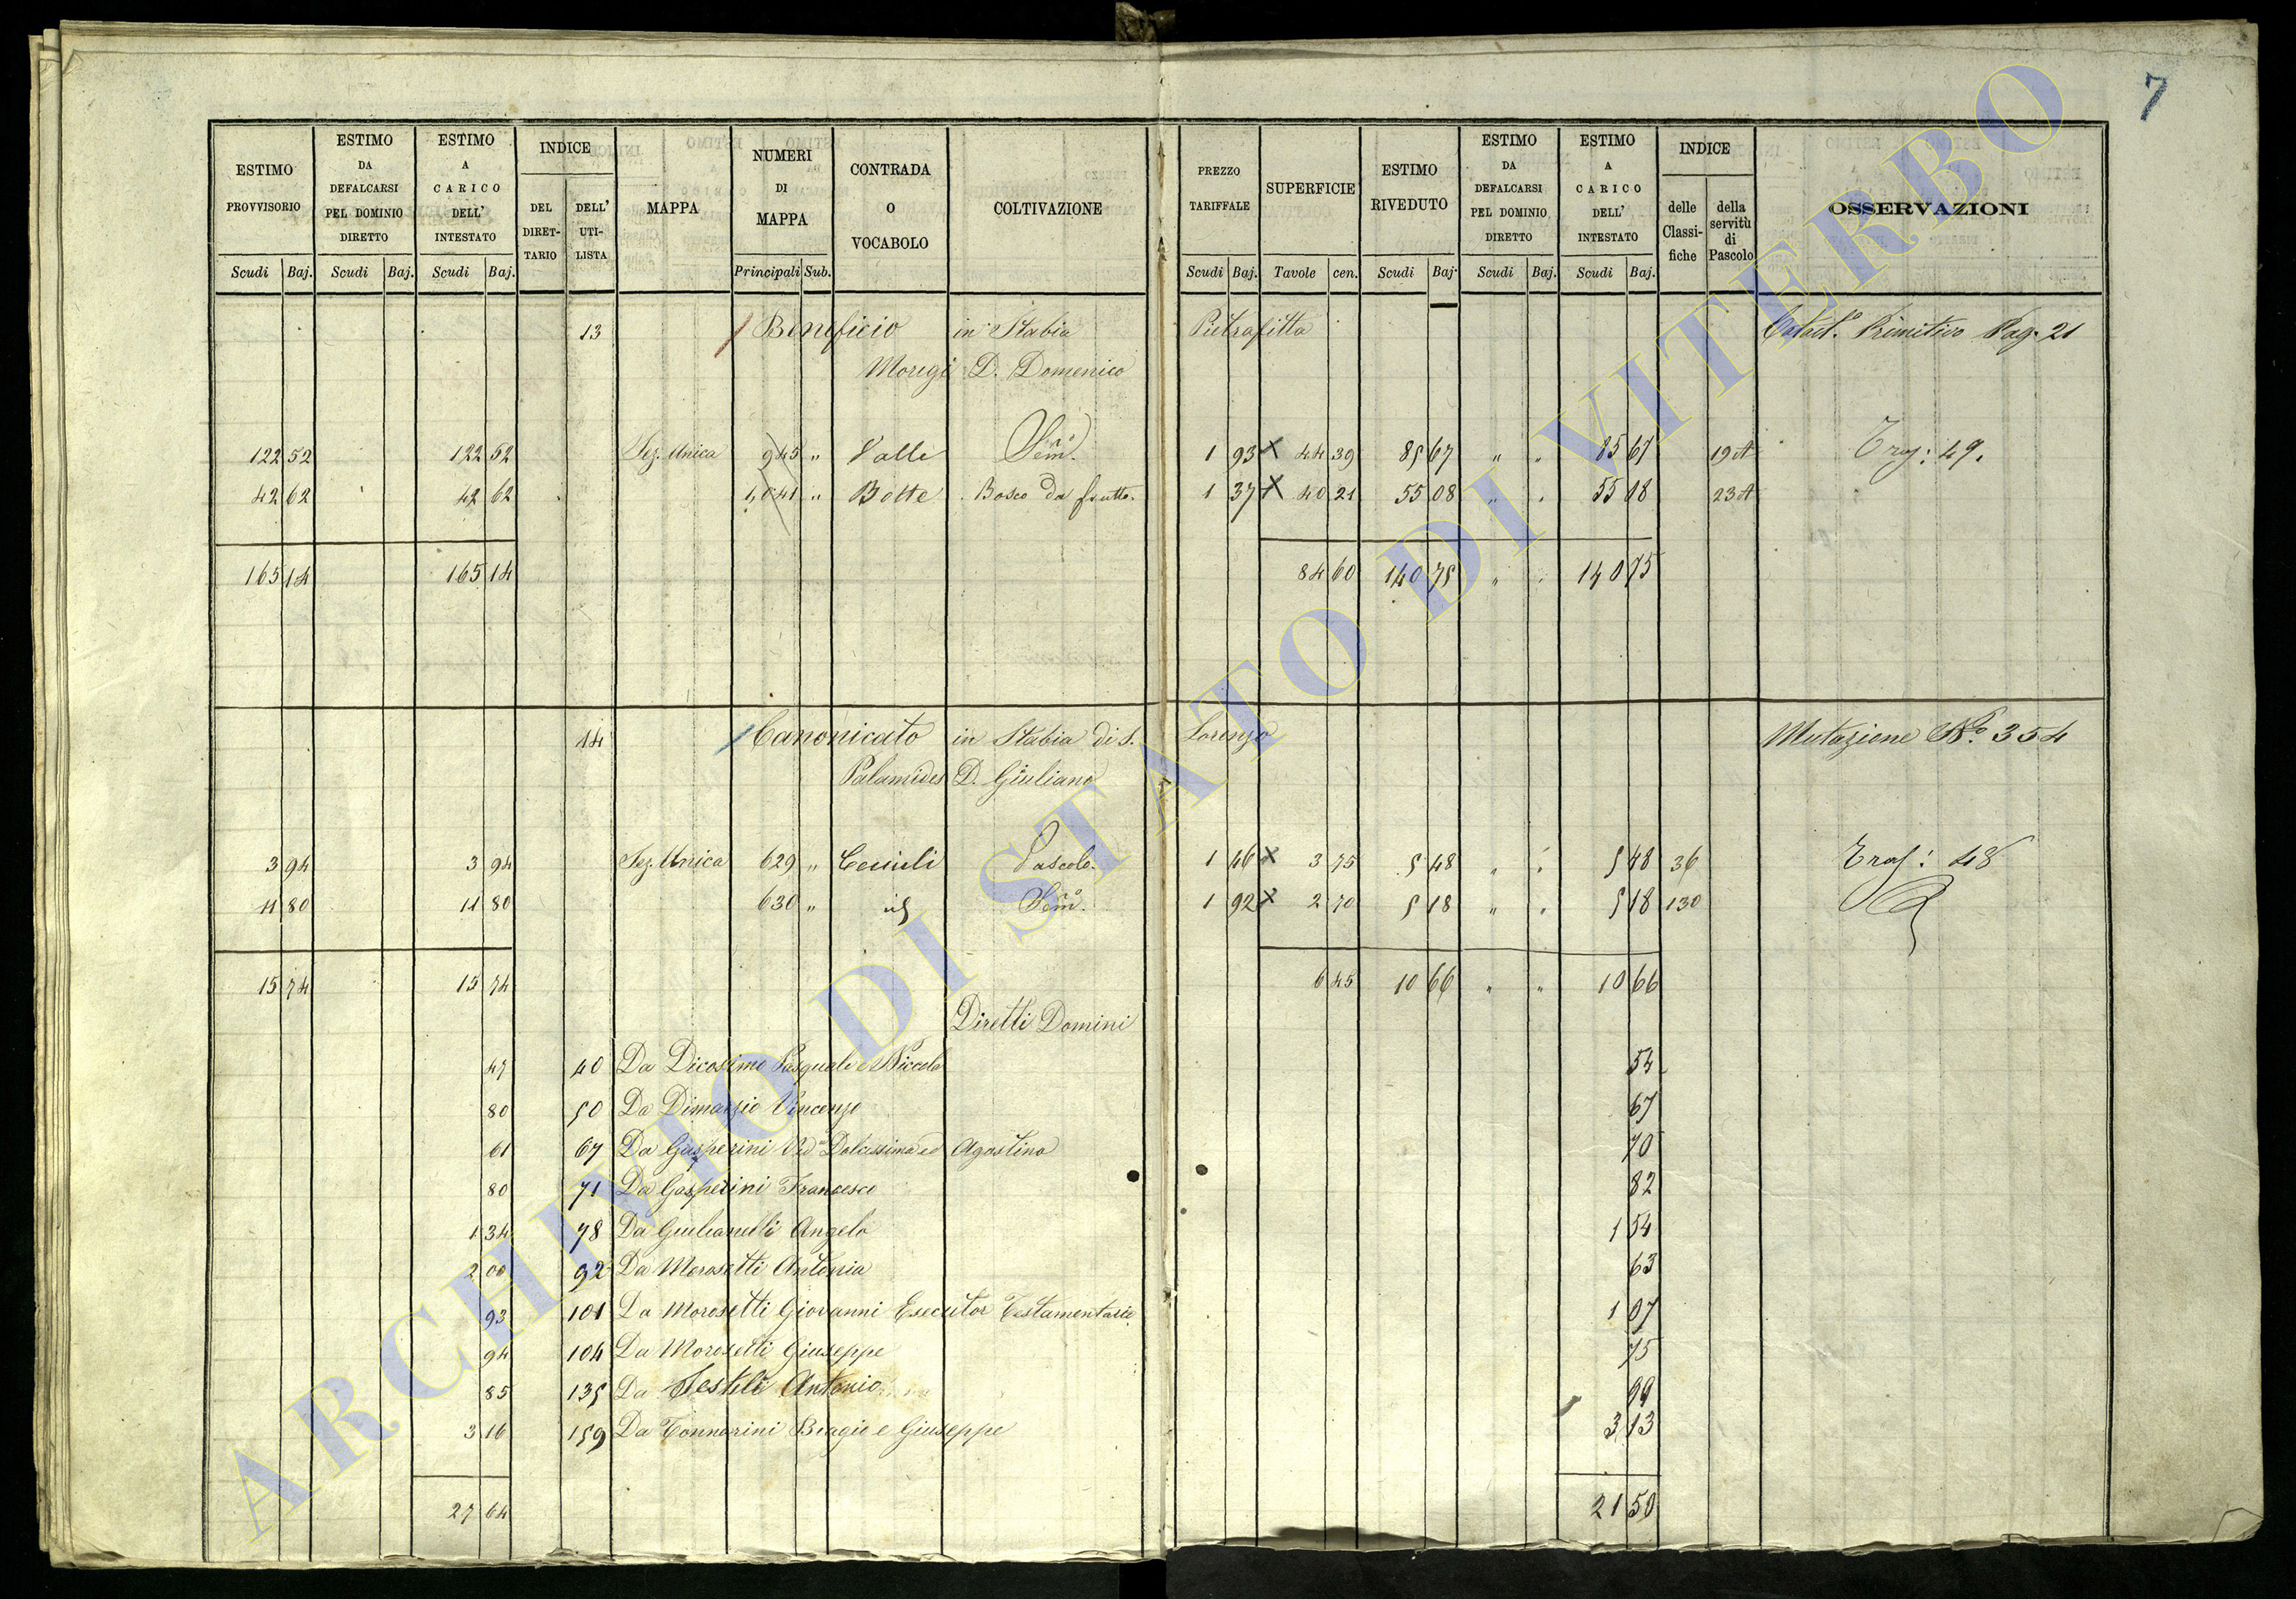 7
ESTIMO PROVVISORIO ESTIMO DA DEFALCARSI PEL DOMINIO DIRETTO ESTIMO A CARICO DELL' INTESTATO INDICE DEL DIRET-TARIO DELL' UTI-LISTA MAPPA NUMERI DI MAPPA CONTRADA O VOCABOLO COLTIVAZIONE PREZZO TARIFFALE SUPERFICIE ESTIMO RIVEDUTO ESTIMO DA DEFALCARSI PEL DOMINIO DIRETTO ESTIMO A CARICO DELL' INTESTATO INDICE delle Classi-fiche della servitù di Pascolo OSSERVAZIONI
Scudi Baj. Scudi Baj. Scudi Baj. Principali Sub. Scudi Baj. Tavole cen. Scudi Baj. Scudi Baj. Scudi Baj.
13 Beneficio in Stabia Pietrafitta Primitivo Pag. 21
Morigi D. Domenico
122 52 122 52 Sez. Unica 945 " Valle Sem.º 1 93 x 44 39 85 67 " " 85 67 19A Tras: 49.
42 62 42 62 1,041 " Botte Bosco da frutto. 1 37 x 40 21 55 08 " " 55 08 23A
165 14 165 14 84 60 140 75 " " 140 75
14 Canonicato in Stabia di S. Lorenzo Mutazione Nº 354
Palamides D. Giuliano
3 94 3 94 Sez. Unica 629 " Pascolo. 1 46 x 3 75 5 48 " " 5 48 36 Tras: 48
11 80 11 80 630 " id Sem.º 1 92 x 2 70 5 18 " " 5 18 130
15 74 15 74 6 45 10 66 " " 10 66
Diretti Domini
47 40 Da Dicosimo Pasquale e Niccola 54
80 50 Da Dimarzio Vincenzo 67
61 67 Da Gasperini Vd.ª Dolcissima ed Agostino 70
80 71 Da Gasperini Francesco 82
1 34 78 Da Giulianelli Angelo 1 54
2 00 92 Da Morosetti Antonia 63
93 101 Da Morosetti Giovanni Esecutor Testamentario 1 07
94 104 Da Morosetti Giuseppe 75
85 135 Da Testili Antonio 99
3 16 159 Da Tonnarini Biagio e Giuseppe 3 13
27 64 21 50
ARCHIVIO DI STATO DI VITERBO